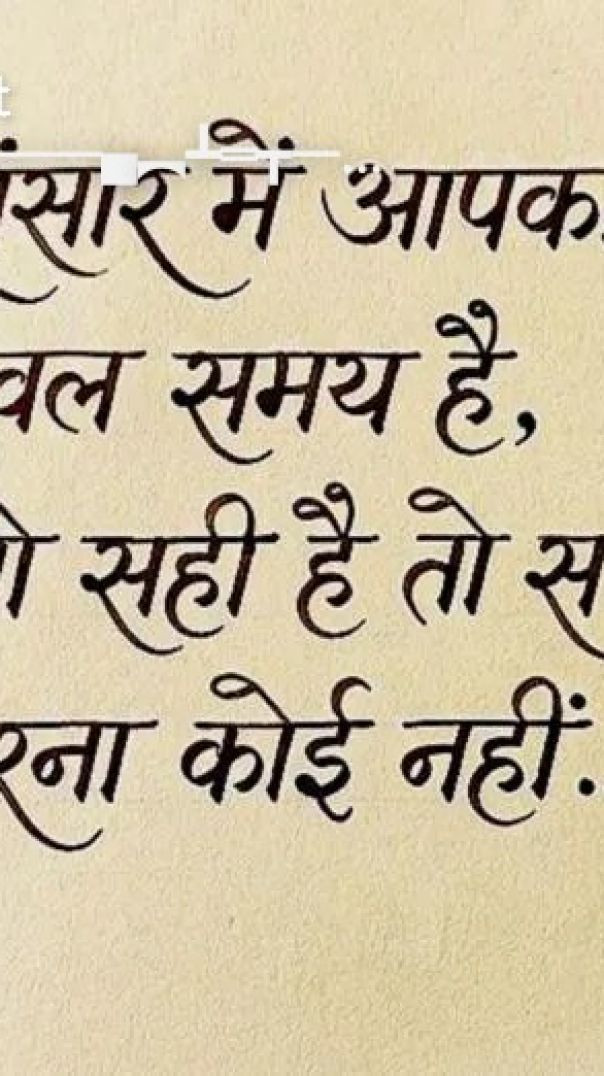 संसार में आपका
केवल समय है,
वो सही है तो सब
वरना कोई नहीं.